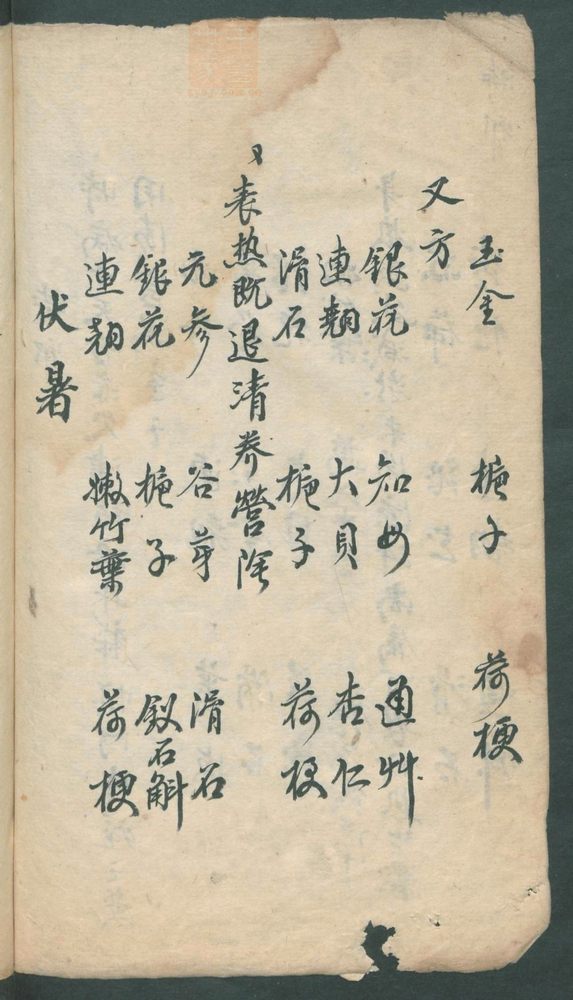 玉金 梔子 荷梗
又方
銀花 知母 通艸
連翹 大貝 杏仁
滑石 梔子 荷梗
又 表热既退清养營陰
元参 谷芽 滑石
銀花 梔子 釵石斛
連翹 嫩竹葉 荷梗
伏暑